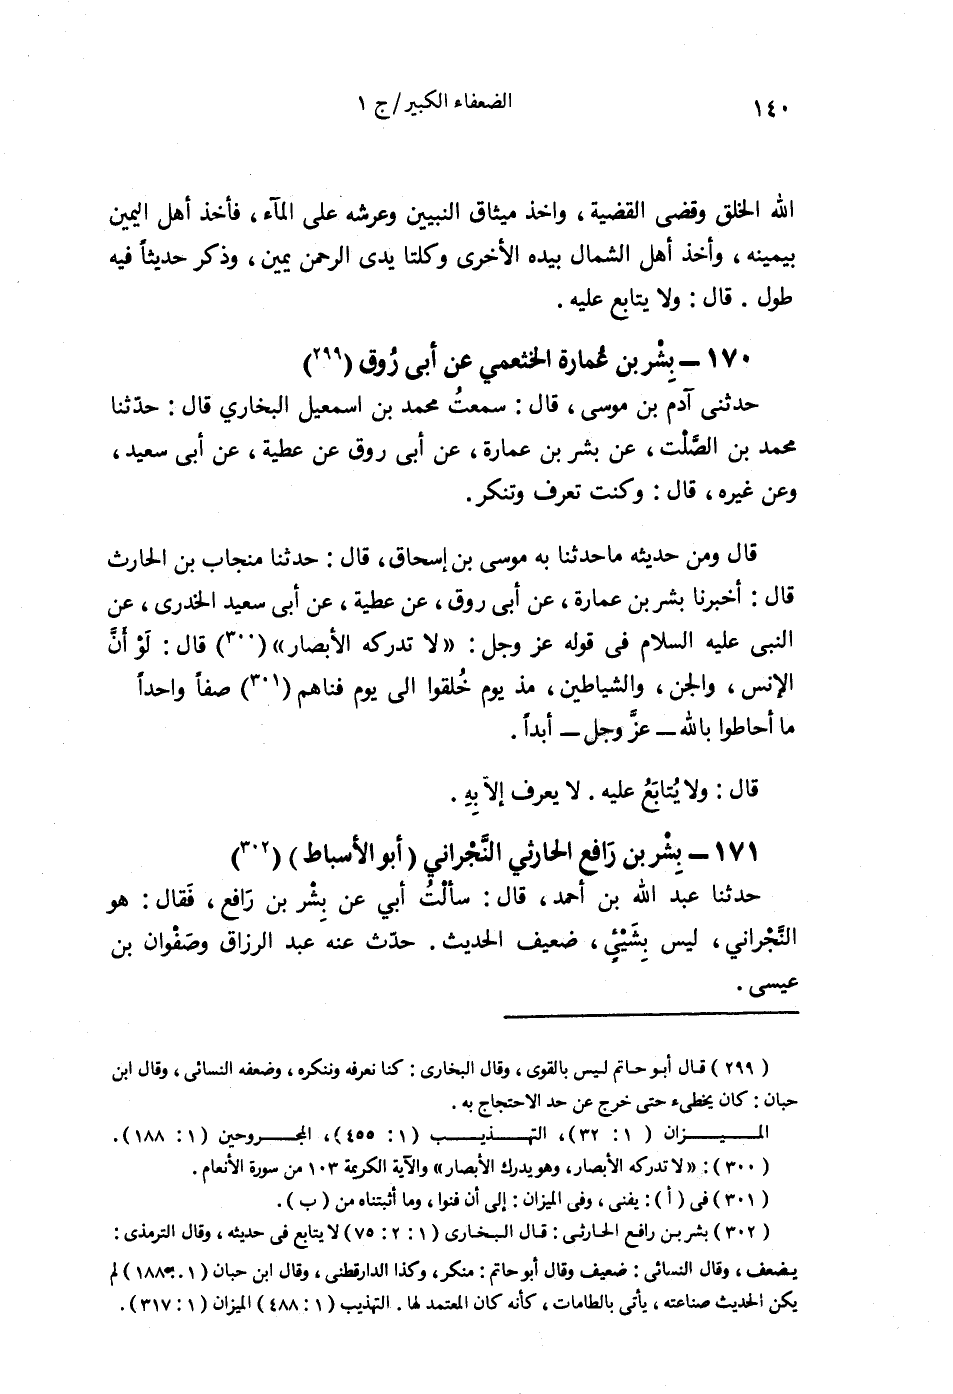 ١٤٠
الضعفاء الكبير/ج ١
الله الخلق وقضى القضية ، واخذ ميثاق النبيين وعرشه على المآء ، فأخذ أهل اليمين
بيمينه ، وأخذ أهل الشمال بيده الأخرى وكلتا يدى الرحمن يمين ، وذكر حديثاً فيه
طول . قال : ولا يتابع عليه .
١٧٠ – بِشْر بن عُمارة الخثعمي عن أبى رُوق (٢٩٩)
حدثنى آدم بن موسى ، قال : سمعتُ محمد بن اسمعيل البخاري قال : حدّثنا
محمد بن الصَّلْت ، عن بشر بن عمارة ، عن أبى روق عن عطية ، عن أبى سعيد ،
وعن غيره ، قال : وكنت تعرف وتنكر .
قال ومن حديثه ماحدثنا به موسى بن إسحاق ، قال : حدثنا منجاب بن الحارث
قال : أخبرنا بشر بن عمارة ، عن أبى روق ، عن عطية ، عن أبى سعيد الخدرى ، عن
النبى عليه السلام فى قوله عز وجل : «لا تدركه الأبصار» (٣٠٠) قال : لَوْ أَنَّ
الإنس ، والجن ، والشياطين ، مذ يوم خُلقوا الى يوم فناهم (٣٠١) صفاً واحداً
ما أحاطوا بالله – عزَّ وجل – أبداً .
قال : ولا يُتابَعُ عليه . لا يعرف إلاّ بِهِ .
١٧١ – بِشْر بن رَافع الحارثي النَّجْراني (أبو الأسباط) (٣٠٢)
حدثنا عبد الله بن أحمد ، قال : سألْتُ أبي عن بِشْر بن رَافع ، فَقال : هو
النَّجْراني ، ليس بِشَيْئٍ ، ضعيف الحديث . حدّث عنه عبد الرزاق وصَفْوان بن
عيسى .
(٢٩٩) قال أبو حاتم ليس بالقوى ، وقال البخارى : كنا نعرفه وننكره ، وضعفه النسائى ، وقال ابن
حبان : كان يخطىء حتى خرج عن حد الاحتجاج به .
الميزان (١ : ٣٢) ، التهذيب (١ : ٤٥٥) ، المجروحين (١ : ١٨٨) .
(٣٠٠) : «لا تدركه الأبصار ، وهو يدرك الأبصار» والآية الكريمة ١٠٣ من سورة الأنعام .
(٣٠١) فى (أ) : يفنى ، وفى الميزان : إلى أن فنوا ، وما أثبتناه من (ب) .
(٣٠٢) بشر بن رافع الحارثى : قال البخارى (١ : ٢ : ٧٥) لا يتابع فى حديثه ، وقال الترمذى :
يضعف ، وقال النسائى : ضعيف وقال أبو حاتم : منكر ، وكذا الدارقطنى ، وقال ابن حبان لم
يكن الحديث صناعته ، يأتى بالطامات ، كأنه كان المعتمد لها . التهذيب (١ : ٤٨٨) الميزان (١ : ٣١٧) .